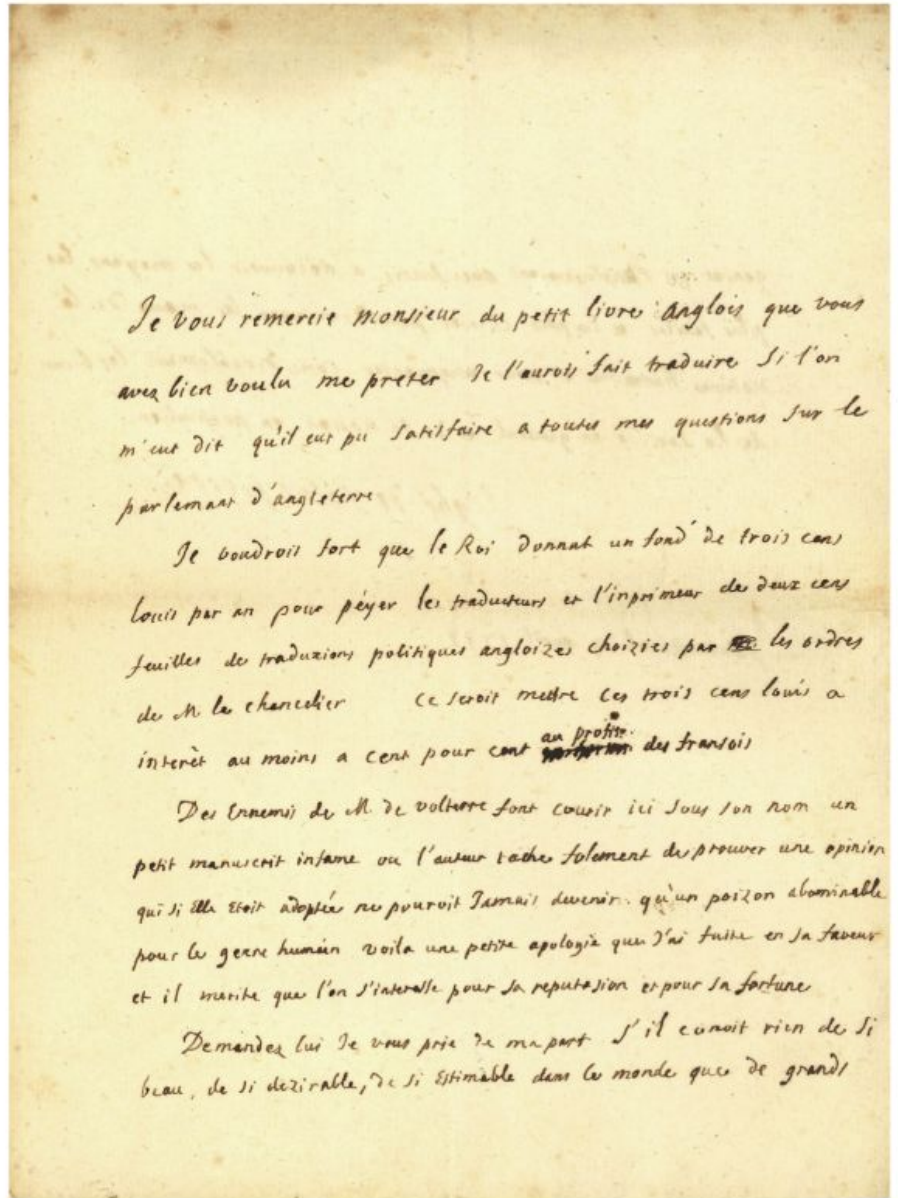 Je vous remercie monsieur du petit livre anglois que vous
avez bien voulu me preter Je l'aurois fait traduire si l'on
m'eut dit qu'il eut pu satisfaire a toutes mes questions sur le
parlemant d'angleterre
Je voudrois fort que le Roi donnat un fond de trois cens
louis par an pour péyer les traducteurs et l'inprimeur de deux cens
feuilles de traduxions politiques angloizes choizies par les ordres
de M le chancelier ce seroit mettre ces trois cens louis a
interèt au moins a cent pour cent au profit des fransois
Des Ennemis de M de volterre font courir ici sous son nom un
petit manuscrit infame ou l'auteur tache folement de prouver une opinion
qui si elle etoit adoptée ne pouroit Jamais devenir qu'un poizon abominable
pour le genre humain voila une petite apologie que J'ai faite en sa faveur
et il merite que l'on s'interesse pour sa reputasion et pour sa fortune
Demandez lui Je vous prie de ma part s'il conoit rien de si
beau, de si dezirable, de si estimable dans le monde que de grands